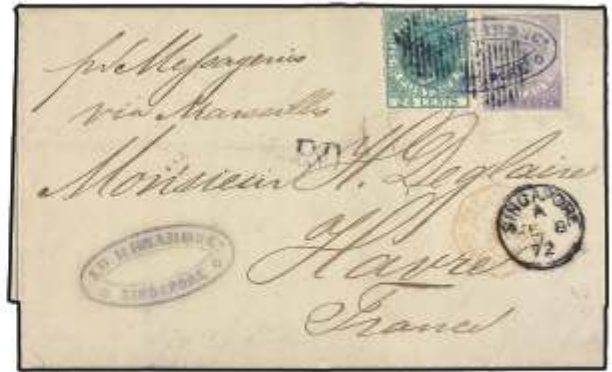 24 CENTS
pr Messageries
via Marseille
P.D.
Monsieur H. Deglaire
Havre
France
SINGAPORE
A
8
72
SINGAPORE